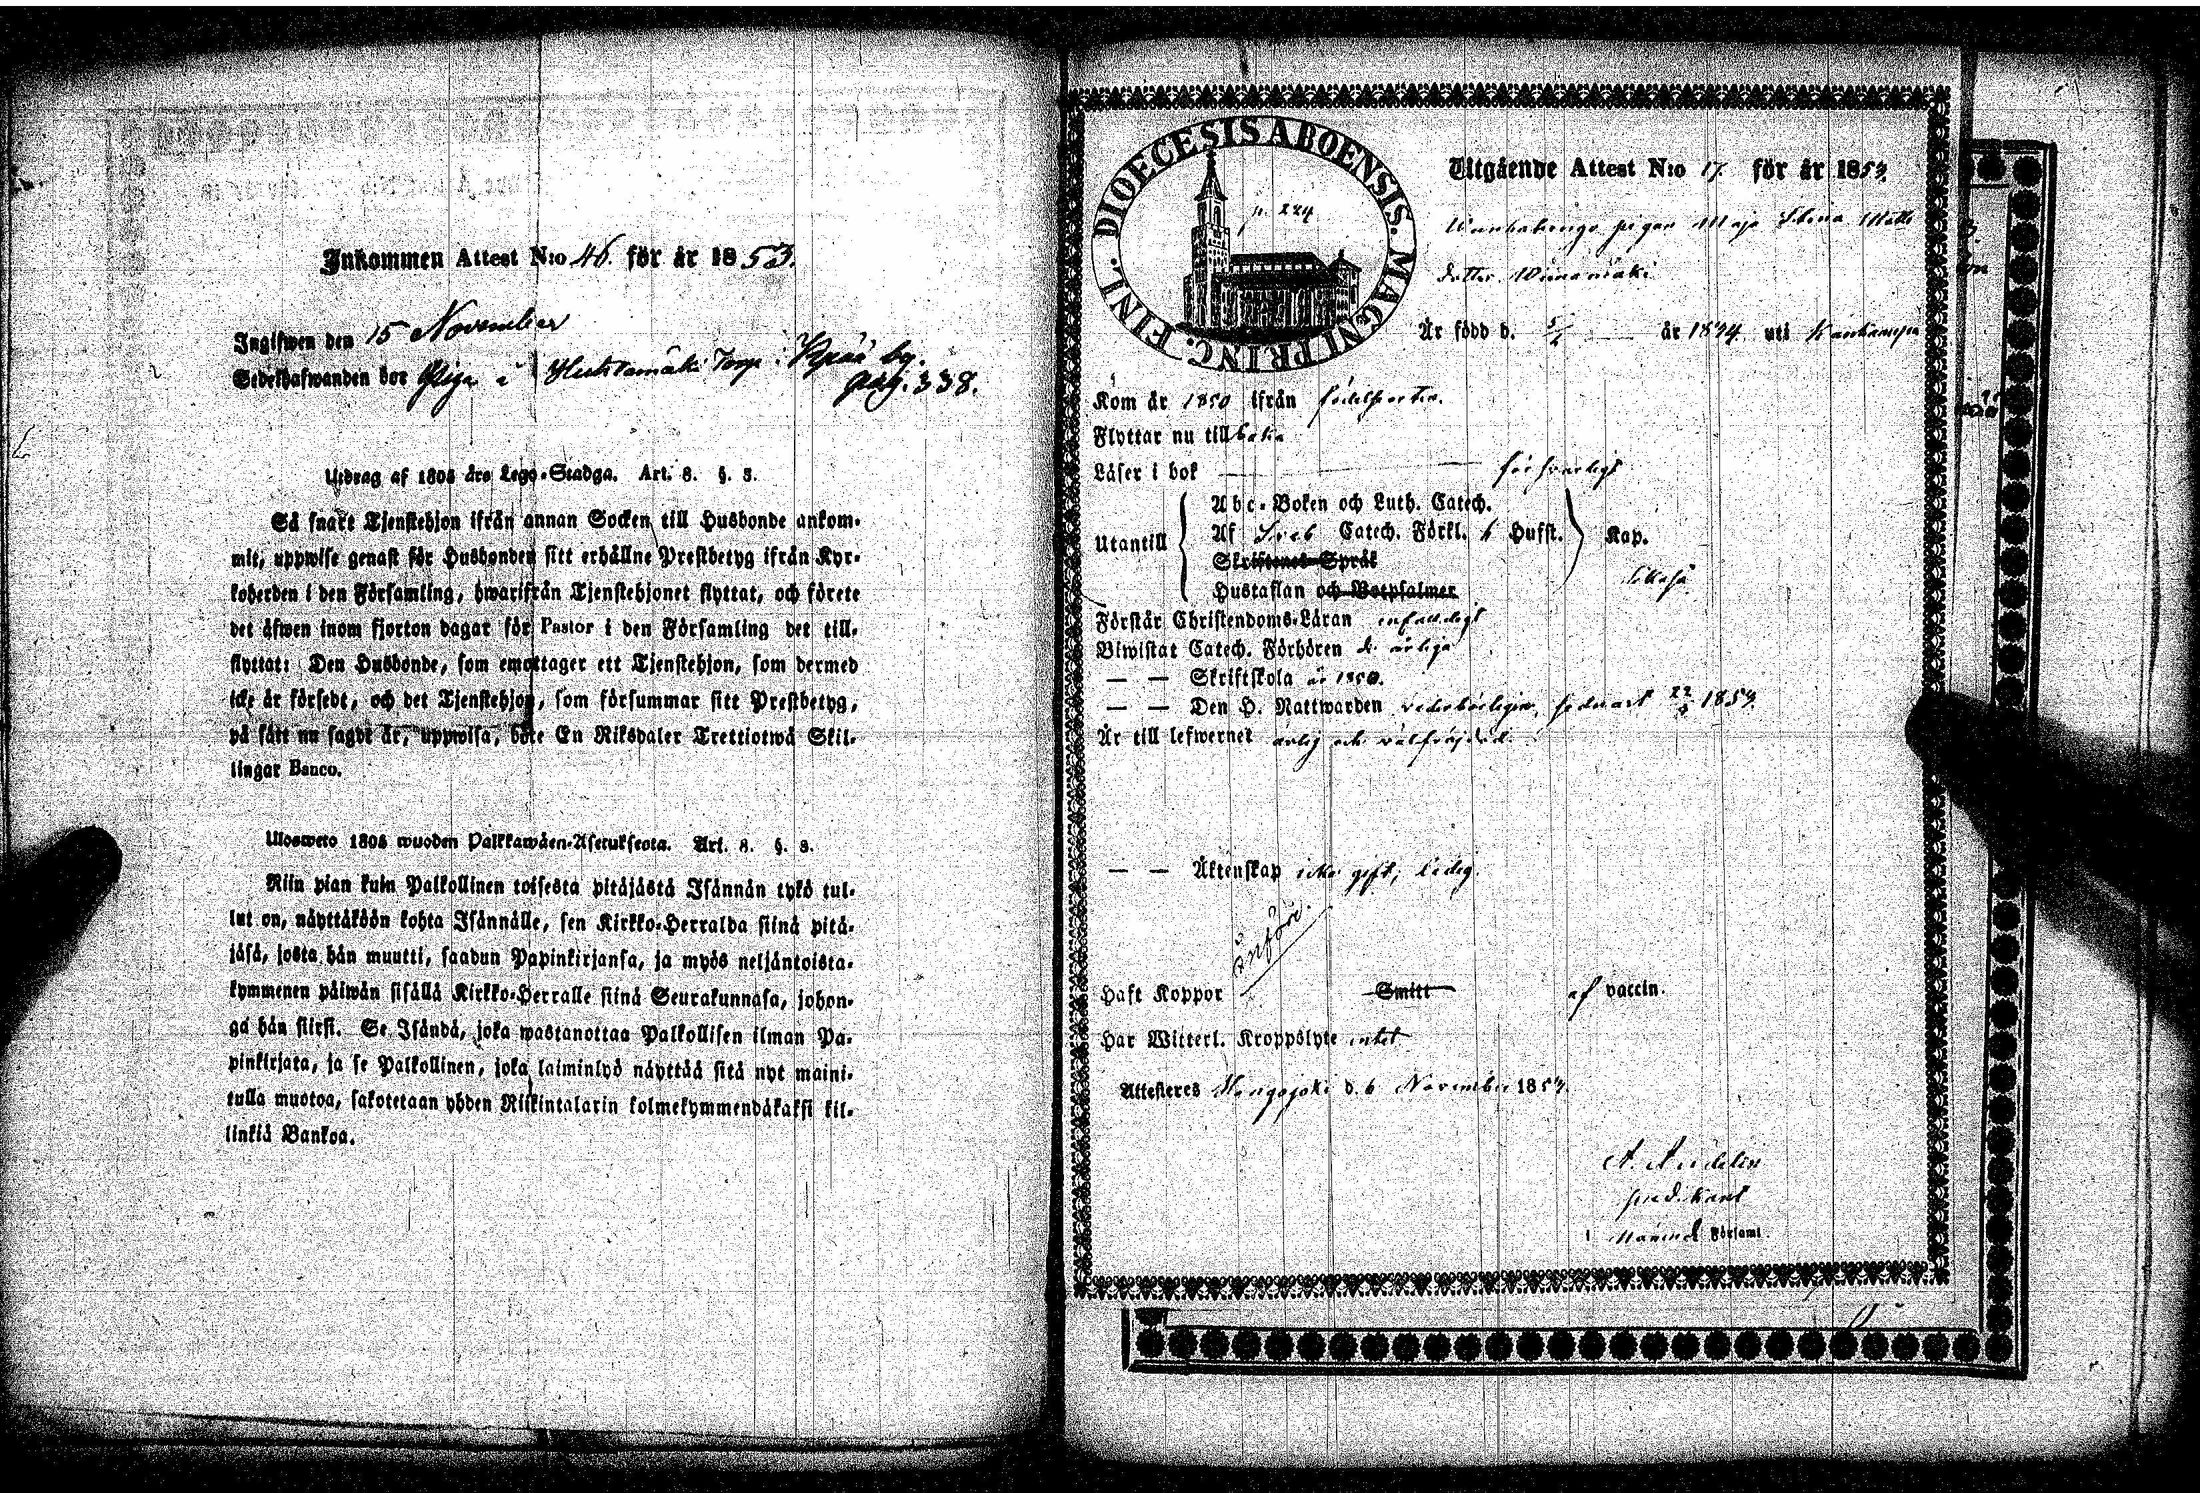 Inkommen Attest N:o 46. för år 1853.
Ingifwen den 15 November
Sedelhafwanden bor Piga i Huhtamäki Torp i by.
pag. 338.
Utdrag af 1805 års Lego-Stadga. Art. 8. §. 3.
Så snart Tjenstehjon ifrån annan Socken till Husbonde ankom-
mit, uppwise genast för Husbonden sitt erhållne Prestbetyg ifrån Kyr-
koherden i den Församling, hwarifrån Tjenstehjonet flyttat, och förete
det äfwen inom fjorton dagar för Pastor i den Församling det till-
flyttat: Den Husbonde, som emottager ett Tjenstehjon, som dermed
icke är försedt, och det Tjenstehjon, som försummar sitt Prestbetyg,
på sätt nu sagdt är, uppwisa, böte En Riksdaler Trettiotwå Skil-
lingar Banco.
Ulosweto 1805 wuoden Palkkawäen-Asetuksesta. Art. 8. §. 3.
Niin pian kuin Palkollinen toisesta pitäjästä Isännän tykö tul-
lut on, näyttäköön kohta Isännälle, sen Kirkko-Herralda siinä pitä-
jäsä, josta hän muutti, saadun Papinkirjansa, ja myös neljäntoista-
kymmenen päiwän sisällä Kirkko-Herralle siinä Seurakunnasa, johon-
ga hän siirsi. Se Isändä, joka wastanottaa Palkollisen ilman Pa-
pinkirjata, ja se Palkollinen, joka laiminlyö näyttää sitä nyt maini-
tulla muotoa, sakotetaan yhden Riikintalarin kolmekymmendäkaksi kil-
linkiä Bankoa.
DIOECESIS ABOENSIS. MAGNI PRINC. FINL.
p. 224
Utgående Attest N:o 17. för år 1853.
pigan Maja Stina Matts
dotter
Är född d. 5/ år 1824. uti Kankaanpä
Kom år 1850 ifrån födelseorten.
Flyttar nu tillbaka
Läser i bok försvarligt
Utantill
Abc-Boken och Luth. Catech.
Af Sveb Catech. Förkl. 6 Hufst. Kap.
Skriftenes Språk
Hustaflan och Botpsalmer
Förstår Christendoms-Läran enfaldigt
Biwistat Catech. Förhören de årliga
— — Skriftskola år 1850.
— — Den H. Nattwarden vederbörligen, sednast 22/ 1853.
Är till lefwernet ärlig och välfräjdad.
— — Äktenskap icke gift, ledig.
Införd.
Haft Koppor Smitt af vaccin.
Har Witterl. Kroppslyte intet
Attesteres Hongojoki d. 6 November 1853.
predikant
i Församl.